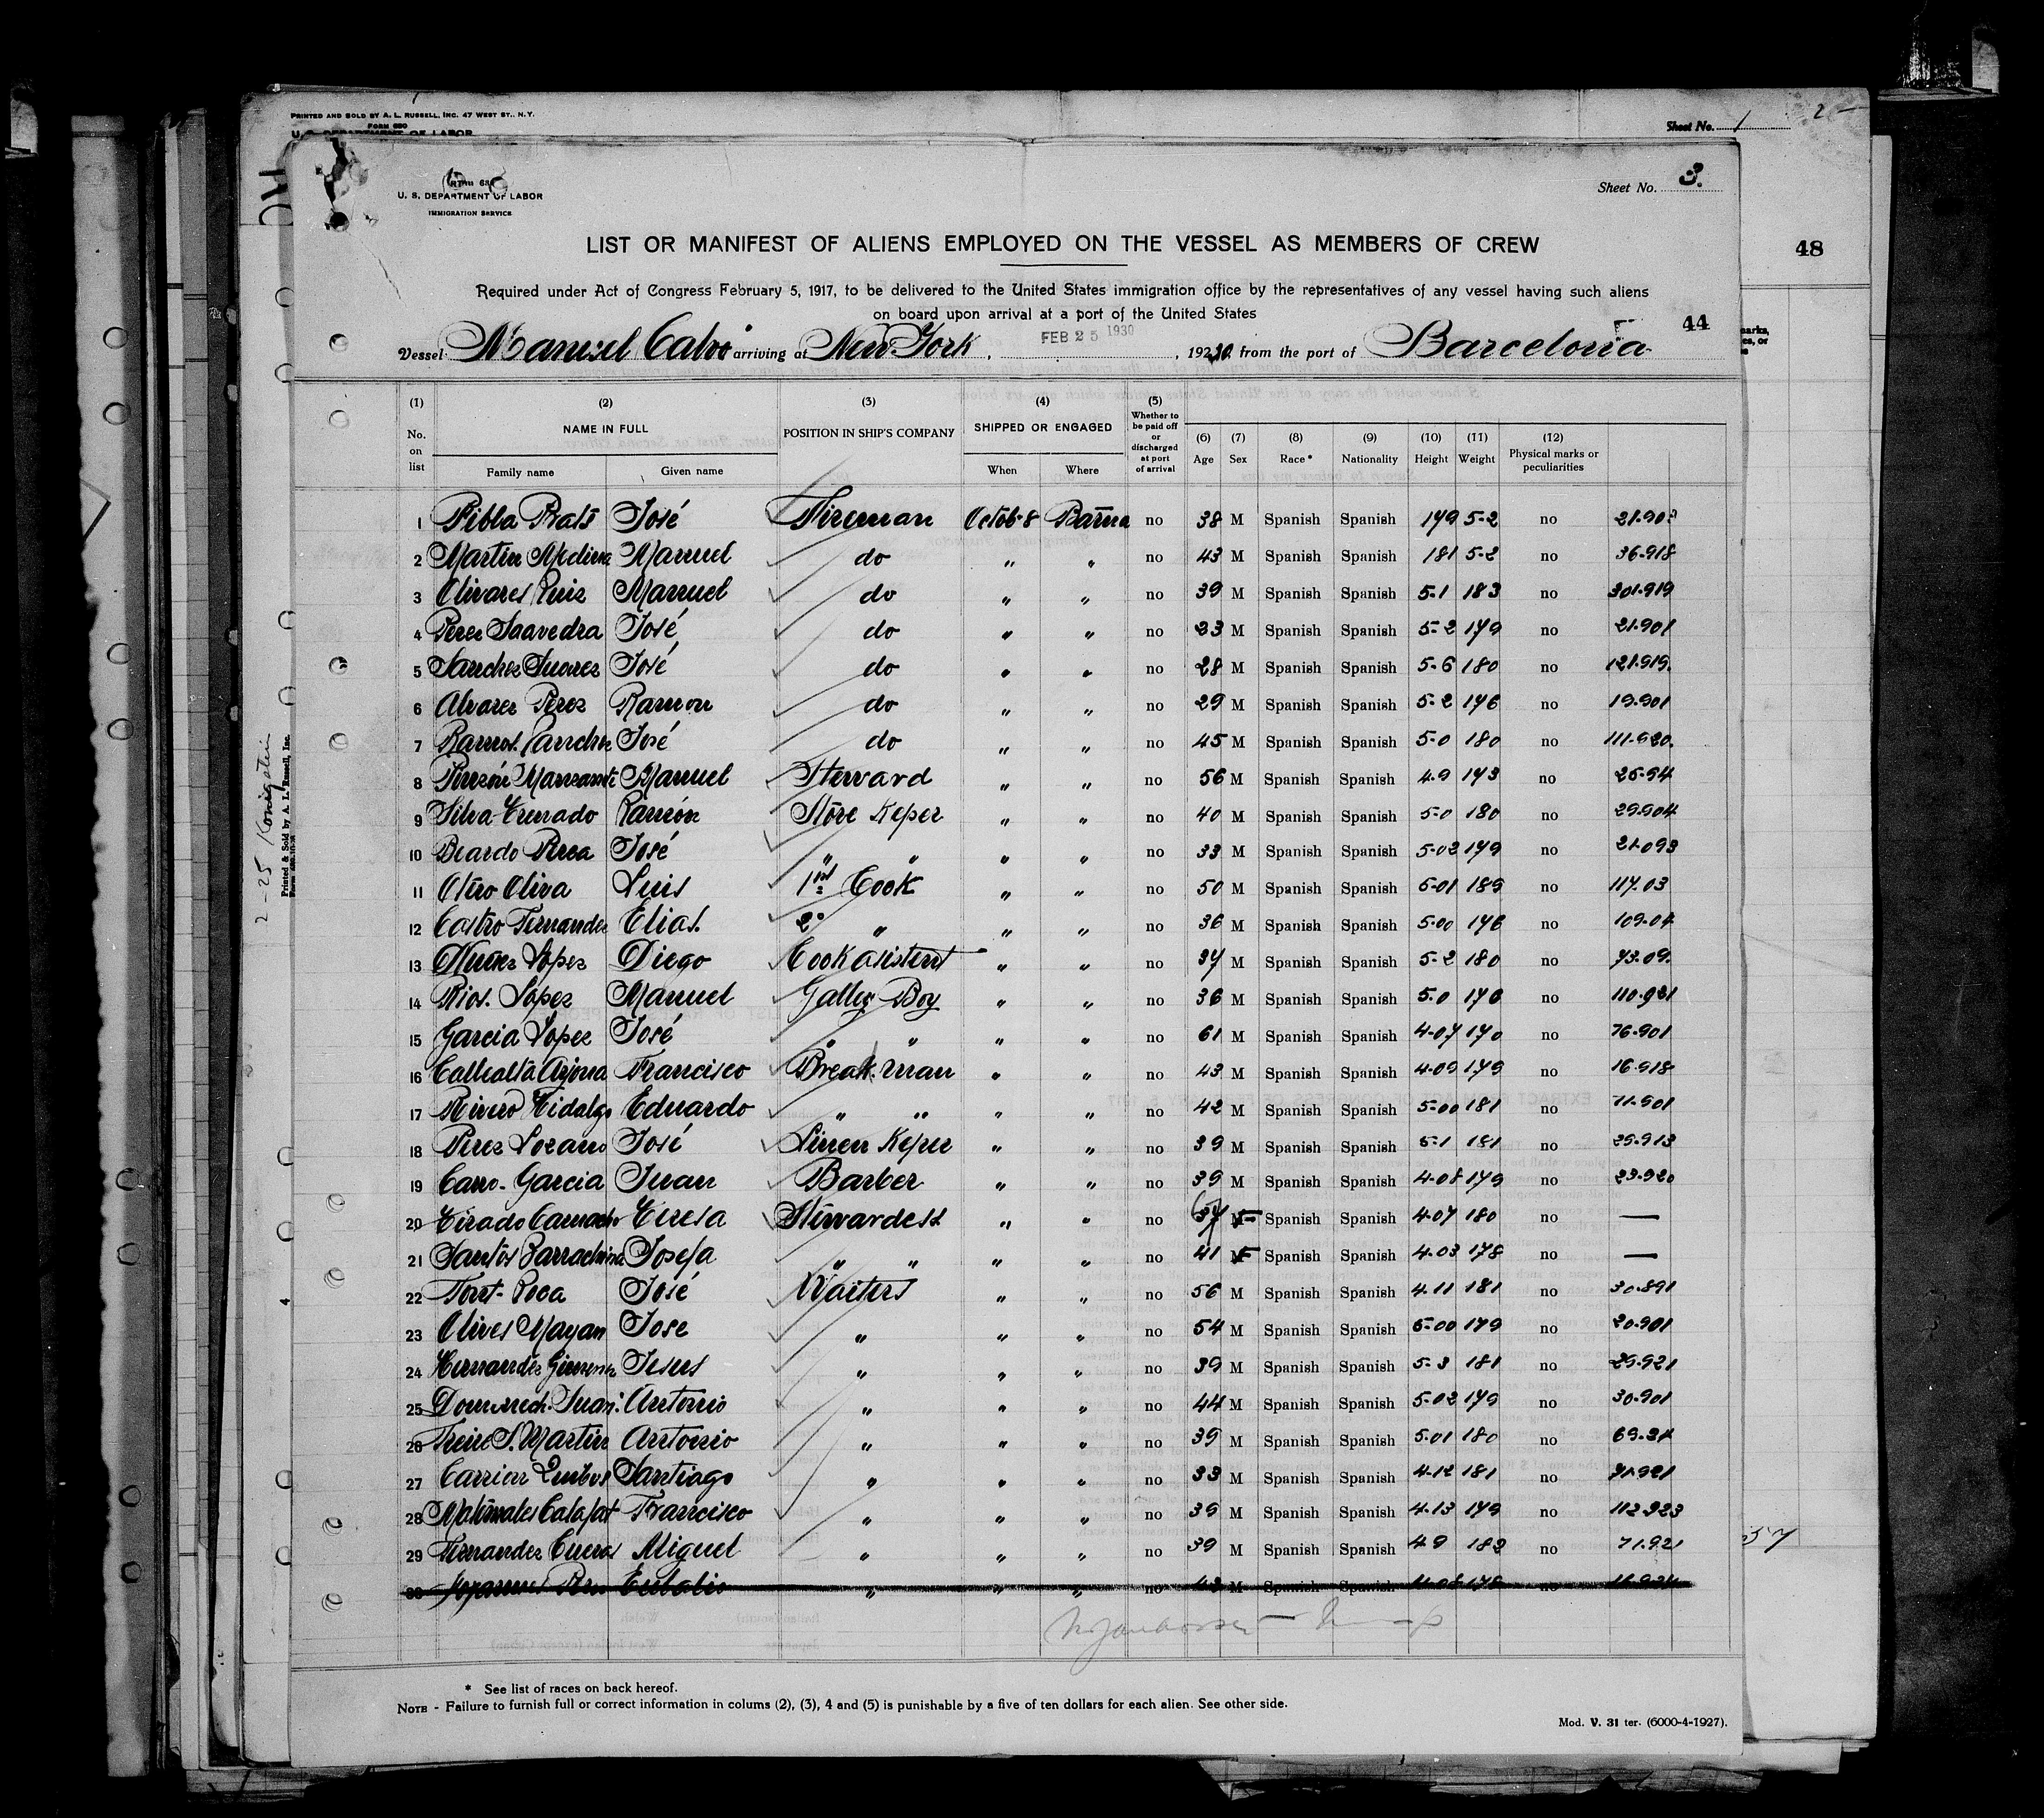 PRINTED AND SOLD BY A. L. RUSSELL, INC. 47 WEST ST., N.Y.
FORM 680
U. S. DEPARTMENT OF LABOR
Sheet No. 1
2 -
U. S. DEPARTMENT OF LABOR
IMMIGRATION SERVICE
Sheet No. 3.
48
LIST OR MANIFEST OF ALIENS EMPLOYED ON THE VESSEL AS MEMBERS OF CREW
Required under Act of Congress February 5, 1917, to be delivered to the United States immigration office by the representatives of any vessel having such aliens
on board upon arrival at a port of the United States
44
Vessel Manuel Calvo arriving at New-York, FEB 25 1930, 1930 from the port of Barcelona
(1) (2) (3) (4) (5)
No. on list NAME IN FULL POSITION IN SHIP'S COMPANY SHIPPED OR ENGAGED Whether to be paid off or discharged at port of arrival
(6) (7) (8) (9) (10) (11) (12)
Age Sex Race* Nationality Height Weight Physical marks or peculiarities
Family name Given name When Where
1 Pibla Prats José Fireman Octob-8 Barna no 38 M Spanish Spanish 179 5-2 no 21.90
2 Martin Medina Manuel do " " no 43 M Spanish Spanish 181 5-2 no 36.918
3 Olivares Ruiz Manuel do " " no 39 M Spanish Spanish 5-1 183 no 301.919
4 Perez Saavedra José do " " no 23 M Spanish Spanish 5-2 179 no 21.901
5 Sanchez Suarez José do " " no 28 M Spanish Spanish 5-6 180 no 121.919.
6 Alvarez Perez Ramon do " " no 29 M Spanish Spanish 5-2 176 no 19.901
7 Ramos Sanchez José do " " no 45 M Spanish Spanish 5-0 180 no 111.920.
8 Manuel Steward " " no 56 M Spanish Spanish 4.9 173 no 25.94
9 Silva Ramón Store Keper " " no 40 M Spanish Spanish 5-0 180 no 29.904
10 Beardo Perea José " " " " no 33 M Spanish Spanish 5-02 179 no 21.093
11 Otero Oliva Luis 1st Cook " " no 50 M Spanish Spanish 5-01 189 no 117.03
12 Castro Fernandez Elias. 2º " " " no 36 M Spanish Spanish 5-00 176 no 109.04
13 Nuñez Lopez Diego Cook asistent " " no 37 M Spanish Spanish 5-2 180 no 73.09.
14 Rios. Lopez Manuel Galley Boy " " no 36 M Spanish Spanish 5-0 176 no 110.921
15 Garcia Lopez José " " " " no 61 M Spanish Spanish 4-07 170 no 76.901
16 Arjona Francisco Break-man " " no 43 M Spanish Spanish 4-09 179 no 16.918
17 Rivero Hidalgo Eduardo " " " " no 42 M Spanish Spanish 5-00 181 no 71.901
18 Perez Lozano José Linen Keper " " no 39 M Spanish Spanish 5-1 181 no 29.913
19 Carro- Garcia Juan Barber " " no 39 M Spanish Spanish 4-08 179 no 23.920
20 Tirado Camacho Teresa Stewardess " " no F Spanish Spanish 4-07 180 no —
21 Santos Barrachina Josefa " " " " no 41 F Spanish Spanish 4-03 178 no —
22 Font- Roca José Waiters " " no 56 M Spanish Spanish 4-11 181 no 30.891
23 Olives Mayan Jose " " " no 54 M Spanish Spanish 5-00 179 no 20.901
24 Hernandez Gimenez Jesus " " " no 39 M Spanish Spanish 5-3 181 no 29.921
25 Domenech. Juan. Antonio " " " no 44 M Spanish Spanish 5-02 179 no 30.901
26 Freire S. Martin Antonio " " " no 39 M Spanish Spanish 5-01 180 no
27 Carrion Santiago " " " no 33 M Spanish Spanish 4-12 181 no 71.921
28 Calafat Francisco " " " no 39 M Spanish Spanish 4-13 179 no 112.923
29 Fernandez Cueras Miguel " " " no 39 M Spanish Spanish 4-9 182 no 71.921
30 Eulalio " " " no 43 M Spanish Spanish 4-08 178 no
* See list of races on back hereof.
NOTE - Failure to furnish full or correct information in colums (2), (3), 4 and (5) is punishable by a five of ten dollars for each alien. See other side.
Mod. V. 31 ter. (6000-4-1927).
2-25 Konigstein
Printed & Sold by A. L. Russell, Inc.